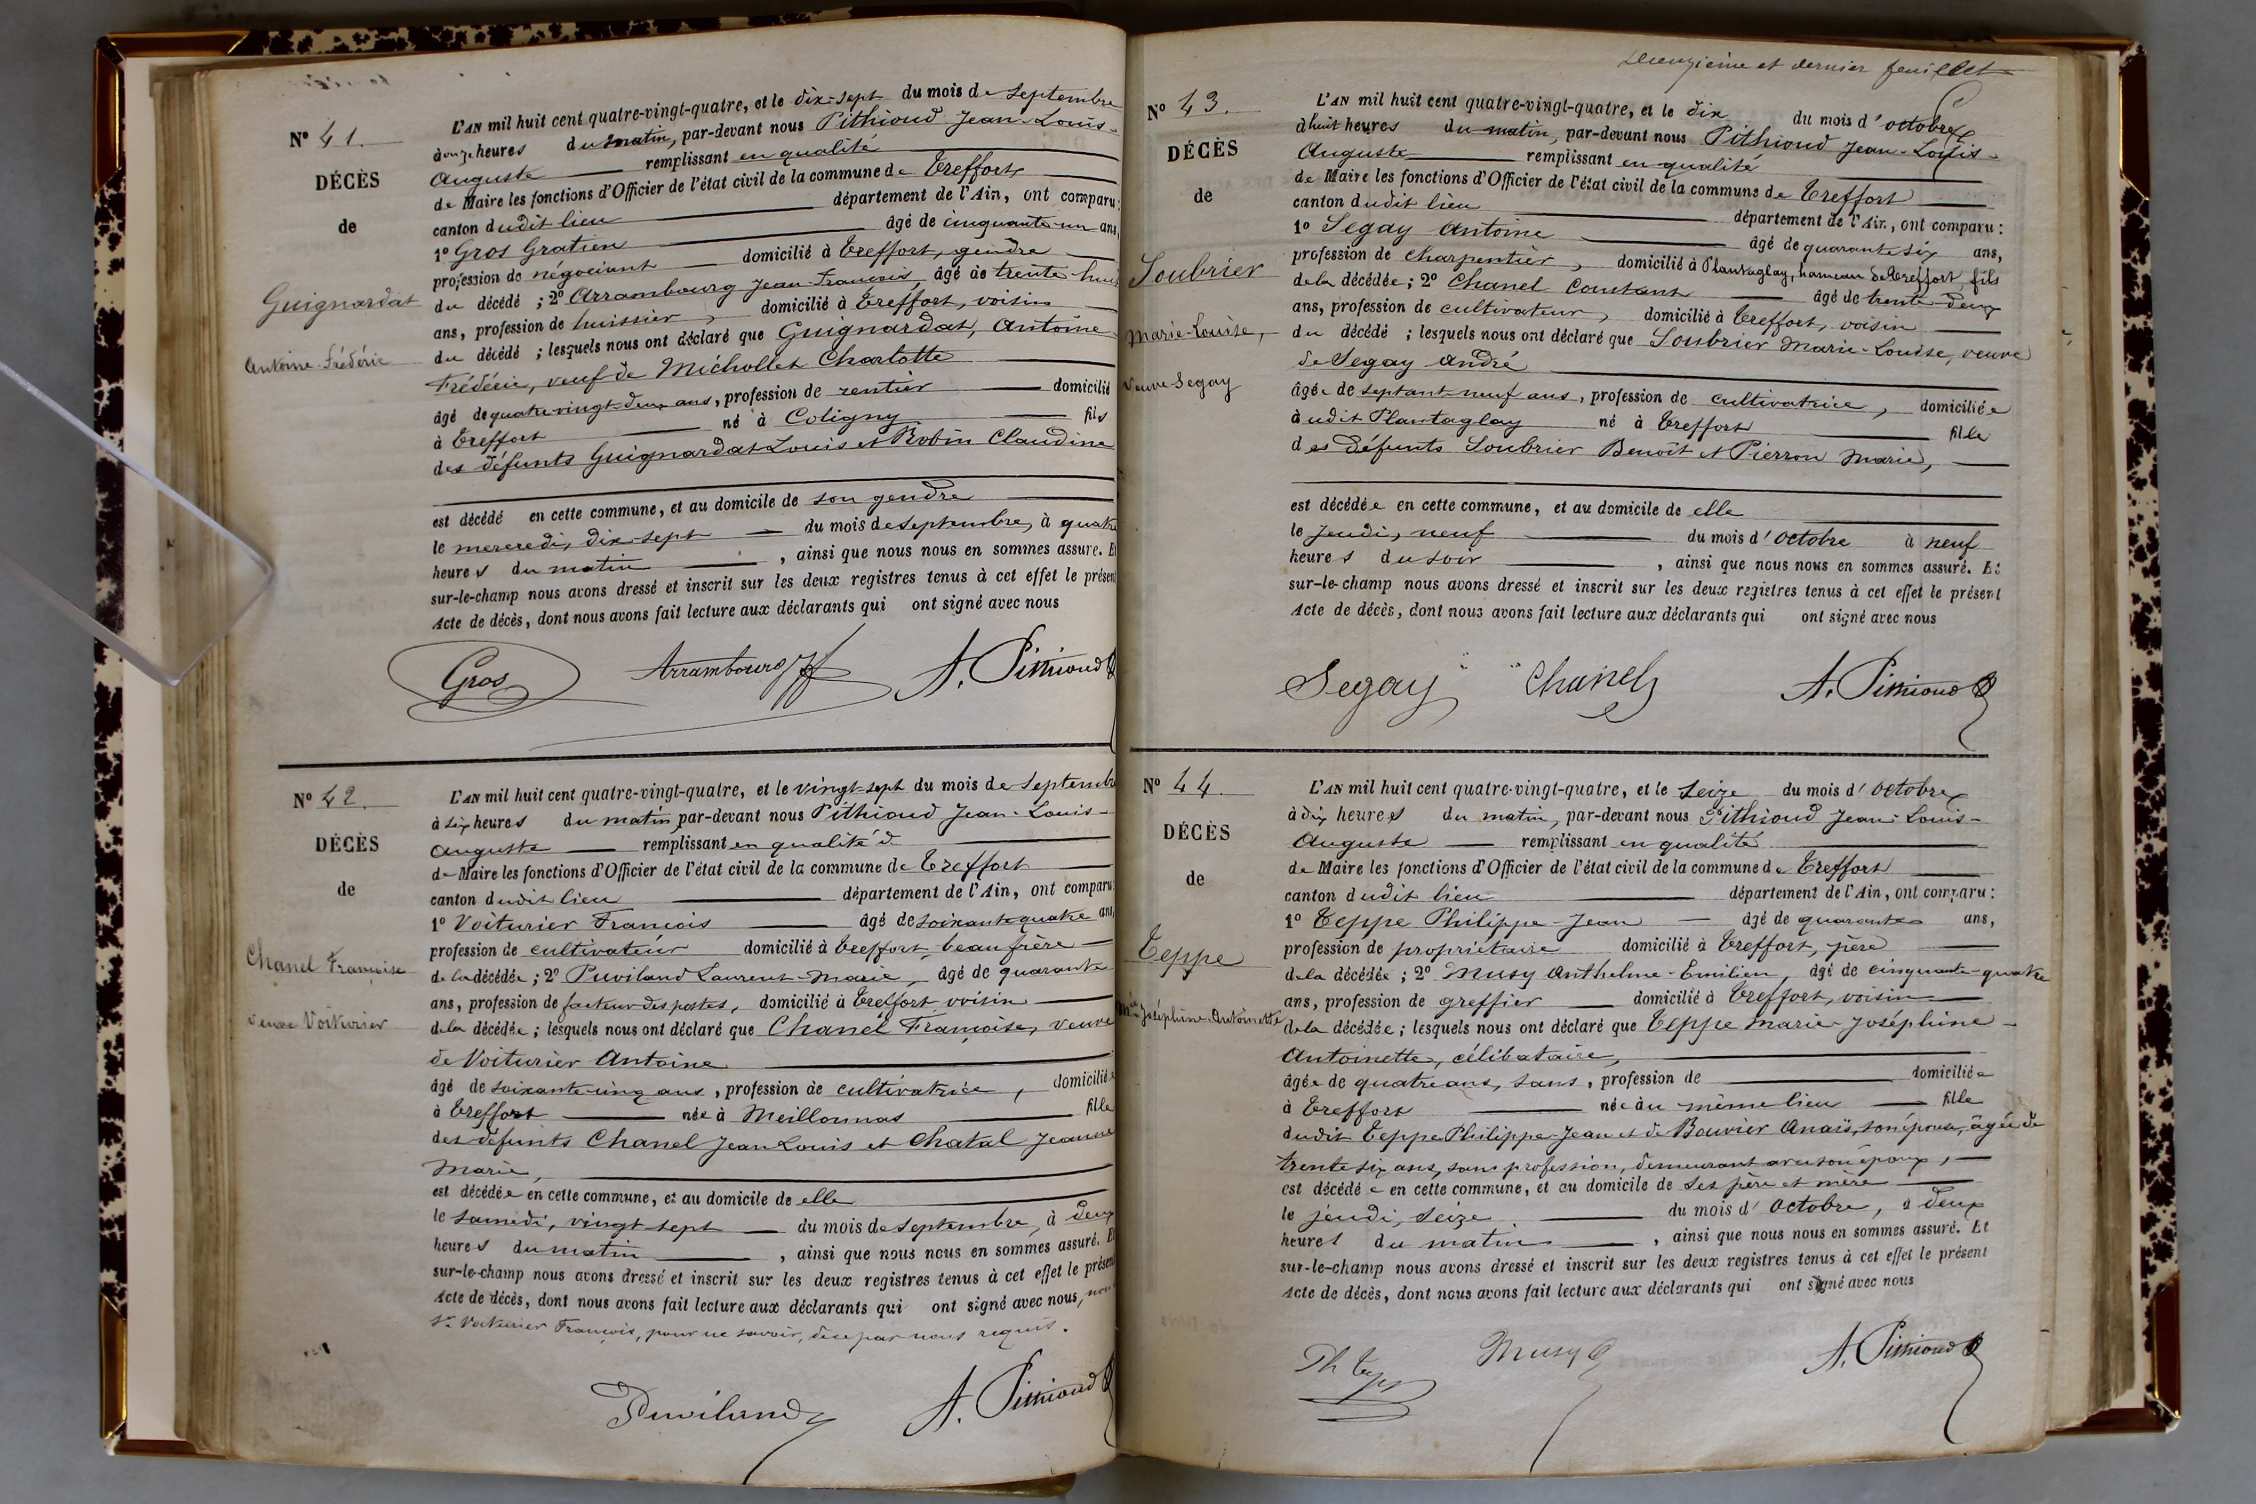 N° 41.
DÉCÈS
de
Guignardat
Antoine-Frédéric
L'AN mil huit cent quatre-vingt-quatre, et le dix-sept du mois de Septembre
à onze heures du matin, par-devant nous Pithioud Jean-Louis-
Auguste remplissant en qualité
de Maire les fonctions d'Officier de l'état civil de la commune de Treffort
canton dudit lieu département de l'Ain, ont comparu:
1° Gros Gratien âgé de cinquante-un ans,
profession de négociant domicilié à Treffort, gendre
du décédé ; 2° Arrambourg Jean-François, âgé de trente-huit
ans, profession de huissier, domicilié à Treffort, voisin
du décédé ; lesquels nous ont déclaré que Guignardat, Antoine
Frédéric, veuf de Michollet Charlotte
âgé de quatre-vingt-deux ans, profession de rentier domicilié
à Treffort né à Coligny fils
des défunts Guignardat Louis et Robin Claudine
est décédé en cette commune, et au domicile de son gendre
le mercredi, dix-sept du mois de Septembre, à quatre
heures du matin , ainsi que nous nous en sommes assuré. Et
sur-le-champ nous avons dressé et inscrit sur les deux registres tenus à cet effet le présent
Acte de décès, dont nous avons fait lecture aux déclarants qui ont signé avec nous
Gros Arrambourg A. Pithioud
N° 42.
DÉCÈS
de
Chanel Françoise
veuve Voiturier
L'AN mil huit cent quatre-vingt-quatre, et le vingt-sept du mois de Septembre
à six heures du matin, par-devant nous Pithioud Jean-Louis-
Auguste remplissant en qualité d
de Maire les fonctions d'Officier de l'état civil de la commune de Treffort
canton dudit lieu département de l'Ain, ont comparu:
1° Voiturier François âgé de soixante quatre ans,
profession de cultivateur domicilié à Treffort, beau frère
de la décédée ; 2° Puviland Laurent-Marie, âgé de quarante
ans, profession de facteur des postes, domicilié à Treffort voisin
de la décédée ; lesquels nous ont déclaré que Chanel Françoise, veuve
de Voiturier Antoine
âgé de soixante cinq ans, profession de cultivatrice, domiciliée
à Treffort née à Meillonnas fille
des défunts Chanel Jean Louis et Chatal Jeanne
Marie,
est décédée en cette commune, et au domicile de elle
le samedi, vingt sept du mois de Septembre, à deux
heures du matin , ainsi que nous nous en sommes assuré. Et
sur-le-champ nous avons dressé et inscrit sur les deux registres tenus à cet effet le présent
Acte de décès, dont nous avons fait lecture aux déclarants qui ont signé avec nous, non
Sr Voiturier François, pour ne savoir, de ce par nous requis.
Puviland A. Pithioud
Deuxième et dernier feuillet
N° 43.
DÉCÈS
de
Soubrier
Marie-Louise,
veuve Segay
L'AN mil huit cent quatre-vingt-quatre, et le dix du mois d'octobre
à huit heures du matin, par-devant nous Pithioud Jean-Louis-
Auguste remplissant en qualité
de Maire les fonctions d'Officier de l'état civil de la commune de Treffort
canton dudit lieu département de l'Ain, ont comparu :
1° Segay Antoine âgé de quarante six ans,
profession de charpentier, domicilié à Plantaglay, hameau de Treffort, fils
de la décédée ; 2° Chanel Constant âgé de trente-deux
ans, profession de cultivateur, domicilié à Treffort, voisin
du décédé ; lesquels nous ont déclaré que Soubrier Marie-Louise, veuve
de Segay André
âgée de septante-neuf ans, profession de cultivatrice, domiciliée
audit Plantaglay né à Treffort fille
des défunts Soubrier Benoît et Pierron Marie,
est décédée en cette commune, et au domicile de elle
le Jeudi, neuf du mois d'octobre à neuf
heures du soir , ainsi que nous nous en sommes assuré. Et
sur-le-champ nous avons dressé et inscrit sur les deux registres tenus à cet effet le présent
Acte de décès, dont nous avons fait lecture aux déclarants qui ont signé avec nous
Segay Chanel A. Pithioud
N° 44.
DÉCÈS
de
Teppe
Mie Joséphine-Antoinette
L'AN mil huit cent quatre-vingt-quatre, et le Seize du mois d'octobre
à dix heures du matin, par-devant nous Pithioud Jean-Louis-
Auguste remplissant en qualité
de Maire les fonctions d'Officier de l'état civil de la commune de Treffort
canton dudit lieu département de l'Ain, ont comparu :
1° Teppe Philippe-Jean âgé de quarante ans,
profession de propriétaire domicilié à Treffort, père
de la décédée ; 2° Musy Anthelme-Emilien, âgé de cinquante-quatre
ans, profession de greffier domicilié à Treffort, voisin
de la décédée ; lesquels nous ont déclaré que Teppe Marie-Joséphine-
Antoinette, célibataire,
âgée de quatre ans, sans, profession de domiciliée
à Treffort née au même lieu fille
dudit Teppe Philippe-Jean et de Bouvier Anaïs, son épouse, âgée de
trente six ans, sans profession, demeurant avec son époux,
est décédée en cette commune, et au domicile de ses père et mère
le jeudi, seize du mois d'octobre, à deux
heures du matin , ainsi que nous nous en sommes assuré. Et
sur-le-champ nous avons dressé et inscrit sur les deux registres tenus à cet effet le présent
Acte de décès, dont nous avons fait lecture aux déclarants qui ont signé avec nous
Ph Teppe Musy A. Pithioud